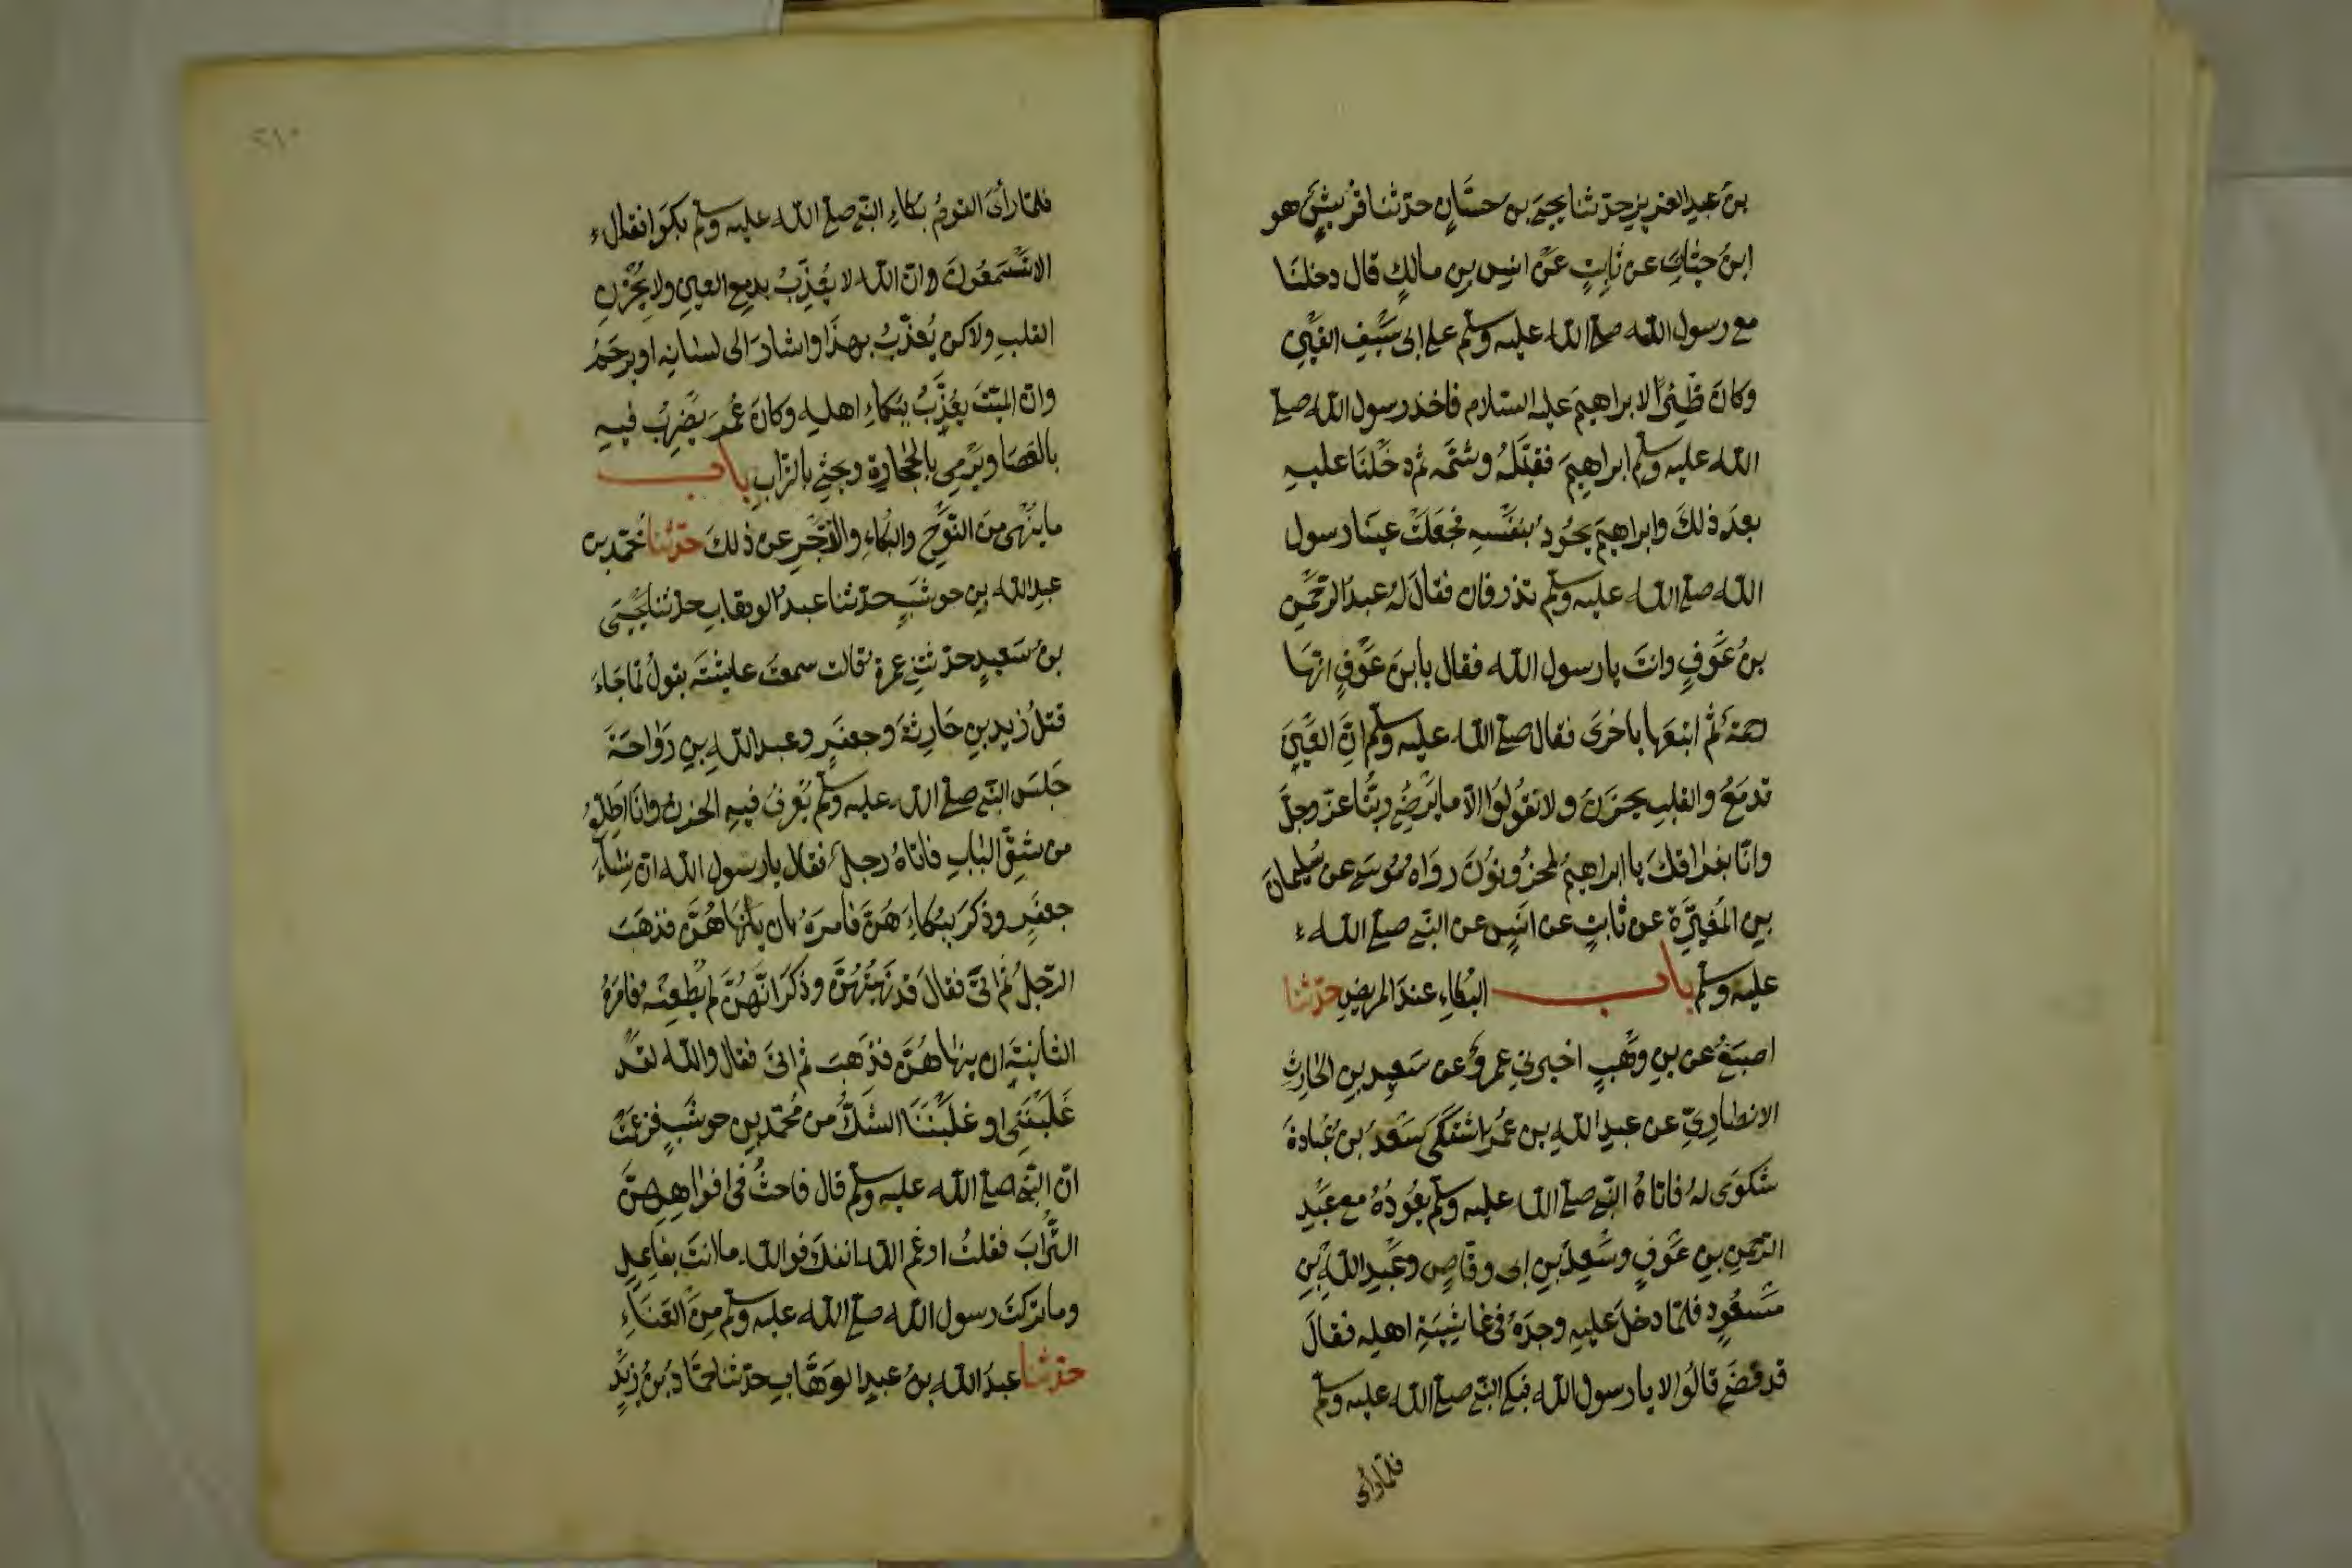 بنُ عبدِ العزيزِ حدّثنا يحيَى بن حسّانٍ حدّثنا قُرَيشٌ هو
ابنُ حيّانَ عن ثابتٍ عَنْ انسِ بنِ مالكٍ قال دخلنَا
مع رسول الله صلى الله عليه وسلم على ابى سَيْفٍ القَيْنِ
وكانَ ظِئْرًا لابراهيمَ عليه السّلام فاخذ رسول الله صلى
الله عليه وسلم ابراهيمَ فقبّلَهُ وشمّه ثم دخَلْنَا عليهِ
بعدَ ذلكَ وابراهيمُ يجُودُ بنفسِهِ فجَعَلَتْ عينَا رسول
الله صلى الله عليه وسلم تذرفان فقالَ لهُ عبدُ الرّحمنِ
بنُ عَوْفٍ وانتَ يا رسول الله فقال يا ابنَ عَوْفٍ انّهَا
رحمَةٌ ثُمّ اتبعَها باخرَى فقال صلى الله عليه وسلم انّ العَيْنَ
تدمَعُ والقلبِ يحزَنُ ولا نقُولُوا الّا ما يَرْضَى ربُّنا عزّ وجلّ
وانّا بفراقكَ يا ابراهيمُ لمحزُونُونَ رواه مُوسَى عن سُليمانَ
بنِ المُغيرَةِ عن ثابتٍ عن انَسٍ عن النّبى صلى الله
عليه وسلم باب البُكاءِ عندَ المريضِ حدّثنا
اصبَغُ عن بنِ وَهْبٍ اخبرنِى عمروٌ عن سَعيدِ بنِ الحَارثِ
الانصَارِىّ عن عبدِ اللهِ بن عُمَر اشتَكى سَعْدُ بنُ عُبَادةَ
شكوَى لهُ فاتاهُ النّبى صلى الله عليه وسلم يعُودُهُ مع عَبْدِ
الرّحمنِ بنِ عَوْفٍ وسَعْدِ بنِ ابى وقّاصٍ وعَبْدِ اللهِ بْنِ
مَسعُودٍ فلمّا دخلَ عليهِ وجدَهُ فى غاشِيَةِ اهلِه فقالَ
قد قضَى قالُوا لا يا رسول الله فبكى النّبى صلى الله عليه وسلم
فلمّا رأى
٢٨٠
فلمّا رأىَ القومُ بكاءِ النّبى صلى الله عليه وسلم بكَوا فقال
الا تَسْمَعُونَ وانّ الله لا يُعَذِّبُ بدمعِ العينِ ولا بِحُزْنِ
القلبِ ولاكن يُعذّبُ بهذَا واشارَ الى لسانِه او يرحَمُ
وانّ الميّتَ يعُذَّبُ ببُكاءِ اهلهِ وكانَ عُمَر يَضْرِبُ فيهِ
بالعَصَا ويَرْمِى بالحِجَارَةِ ويحْثِى بالتّرابِ باب
ما يُنْهَى من النّوْحِ والبُكاءِ والزّجْرِ عن ذلكَ حدّثنا محمّد بن
عبدِ الله بنِ حوشَبٍ حدّثنا عبدُ الوهّابِ حدّثنا يَحْيَى
بنُ سَعيدٍ حدّثتنى عمرة قالت سمعتُ عايشَةَ تقولُ لمّا جَاءَ
قتلُ زيدِ بنِ حَارِثَةَ وجعفَرٍ وعبدِ اللهِ بنِ رَوَاحَةَ
جَلسَ النّبى صلى الله عليه وسلم يُعْرفُ فيهِ الحزنُ وانَا اطّلعُ
من شقِّ البَابِ فاتاهُ رجلٌ فقال يا رسول الله انّ نِسَاءَ
جعفَرٍ وذكرَ ببُكاءَ هُنّ فامرَهُ بان ينْهَا هُنّ فذهَبَ
الرّجلُ ثُم اتىَ فقالَ قَدْ نَهَيْتُهُنَّ وذكرَ انّهُنَّ لم يُطعِنْه فامَرَهُ
الثانيَةَ ان ينهَا هُنّ فذَهبَ ثم اتىَ فقال واللهِ لقَدْ
غَلَبْنَنِى او غلبْنَنَا الشّكُّ من مُحمّدِ بنِ حوشَبٍ فزعَمَتْ
انّ النّبى صلى الله عليه وسلم قال فاحثُ فى افوَاهِهِنّ
التُّرَابَ فقلتُ ارغم الله انفكَ فوالله ما انتَ بفاعِلٍ
وما تركتَ رسول الله صلى الله عليه وسلم مِنَ العَنَاءِ
حدّثنا عبدُ الله بنُ عبدِ الوَهّابِ حدّثنا حمّادُ بنُ زَيْدٍ